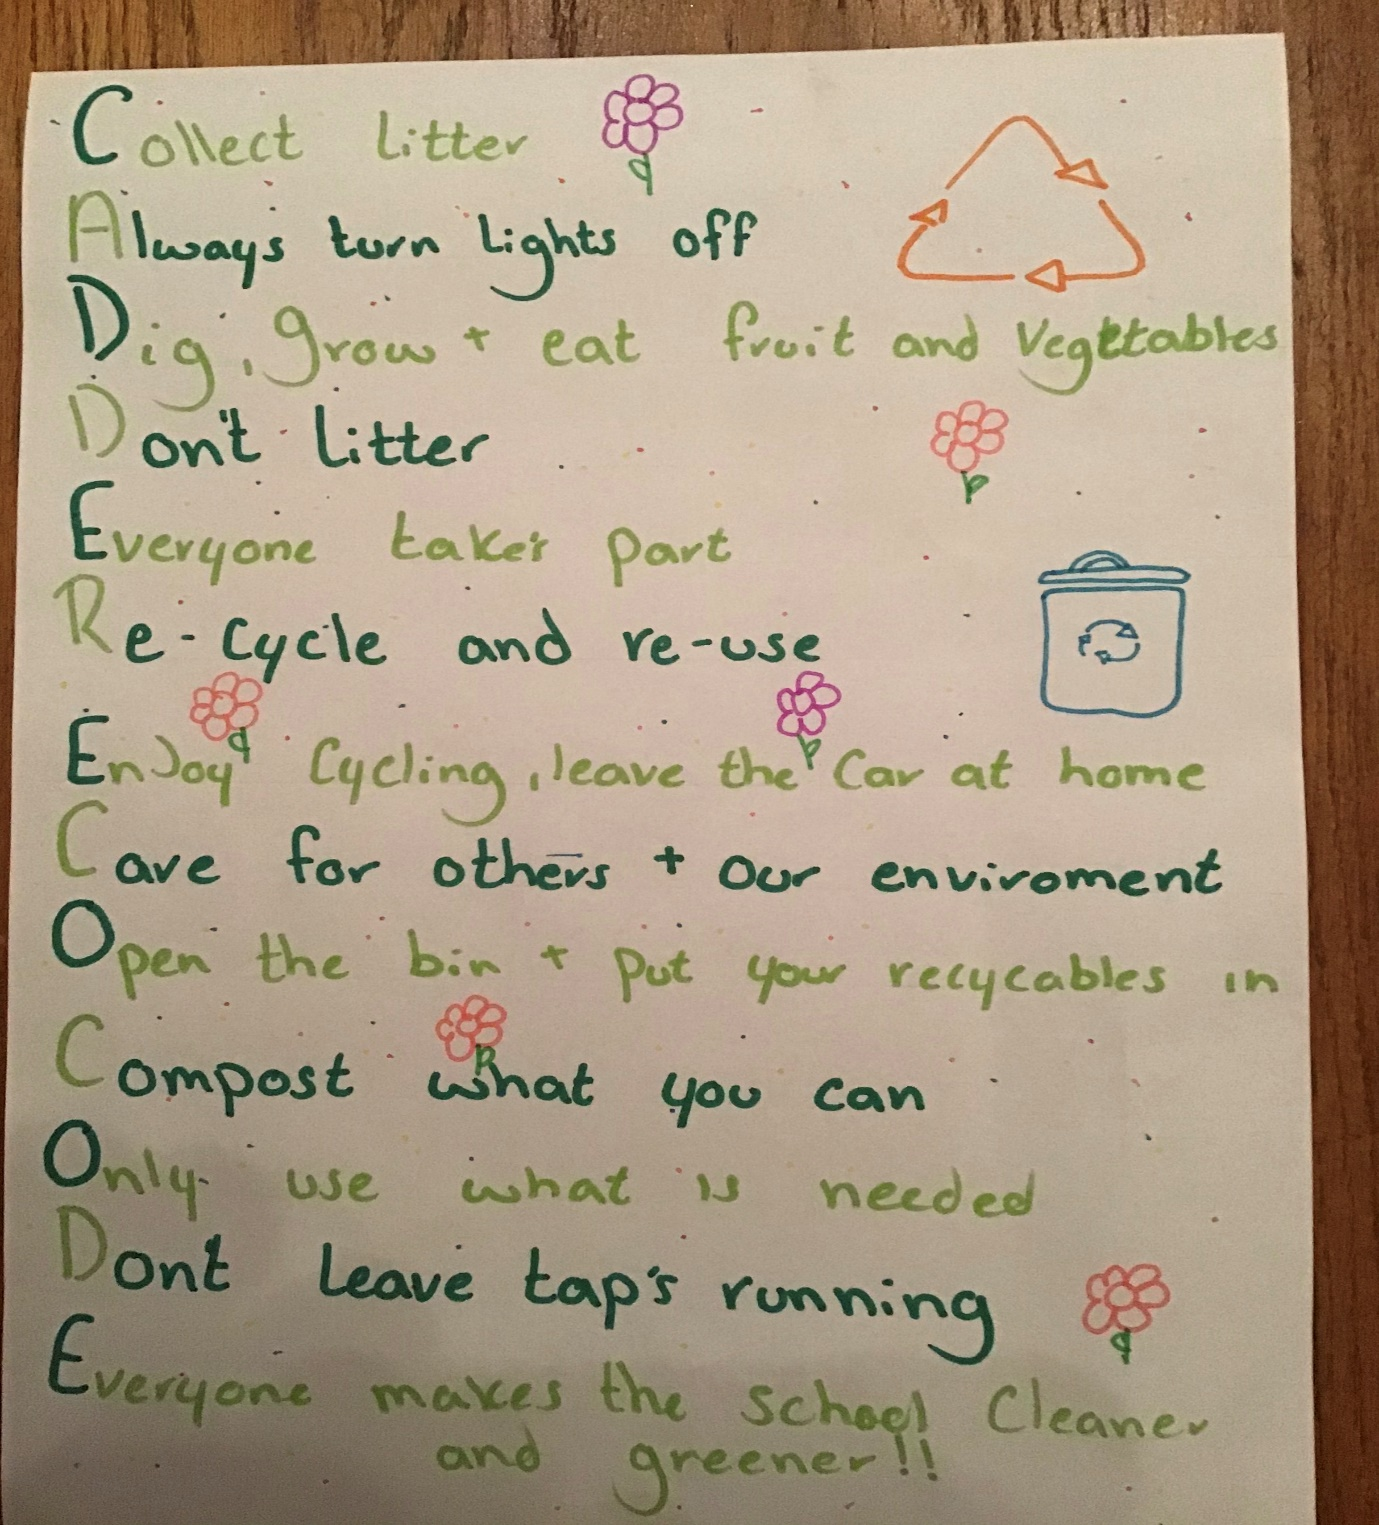 Collect litter
Always turn lights off
Dig, grow + eat fruit and vegetables
Don't litter
Everyone takes part
Re-cycle and re-use
Enjoy cycling, leave the car at home
Care for others + our enviroment
Open the bin + put your recycables in
Compost what you can
Only use what is needed
Dont leave tap's running
Everyone makes the school cleaner
and greener!!